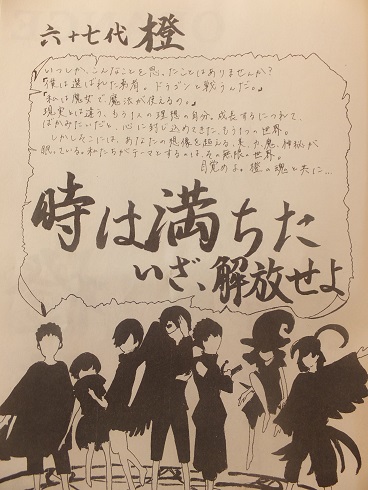 六十七代 橙
いつしか、こんなことを思ったことはありませんか？
「僕は選ばれた勇者。ドラゴンと戦うんだ。」
「私は魔女で、魔法が使えるの。」
現実とは違う、もう1人の理想の自分。成長するにつれて、
ばかみたいだと、心に封じ込めてきた、もう1つの世界。
しかしそこには、あなたの想像を超える、美、力、魔、神秘が
眠っている。私たちがテーマとするのは、その無限の世界。
目覚めよ。橙の魂と共に…
時は満ちた
いざ、解放せよ